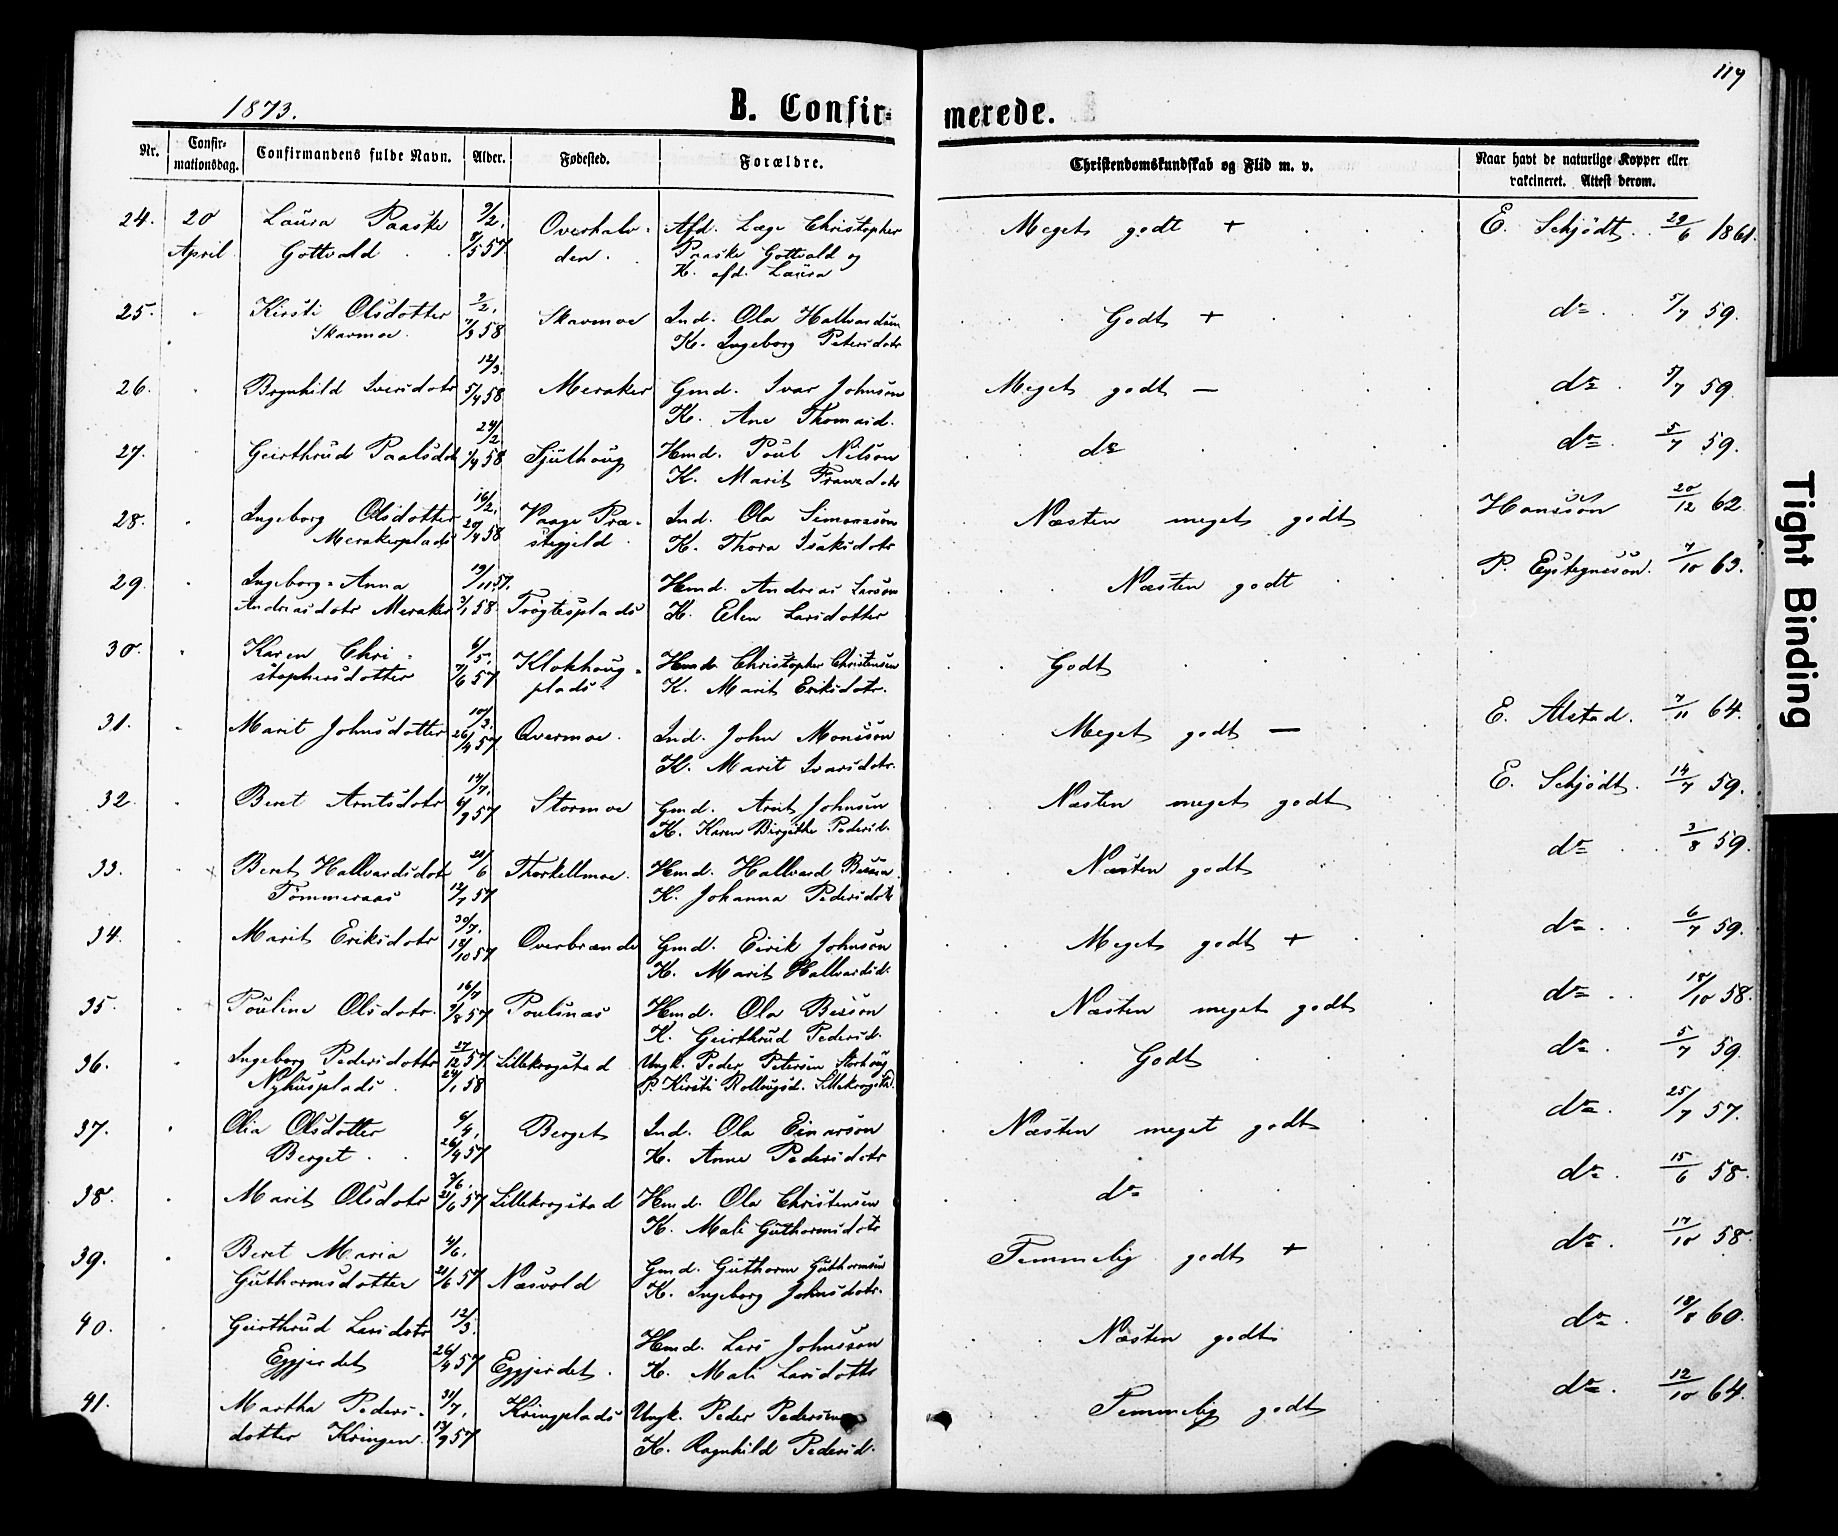 119
1873.
B. Confir-
merede.
Nr. Confir- Confirmandens fulde Navn. Alder. Fødested. Forældre. Christendomskundskab og Flid m. v. Naar havt de naturlige Kopper eller
mationsdag. vakcineret. Attest derom.
24. 20 Laura Paaske 9/2. Overhalv- Afd. Læge Christopher Meget godt + E. Schjödt. 29/6 1861.
April Gottvald 57. den. Paaske Gottvald og
K. afd. Laura
25. Kirsti Olsdotter 2/2. Skarmoe Ind. Ola Hallvardsen Godt + do 5/7 59.
Skarmoe. 58 K. Ingeborg Petersdotr
26. Brynhild Iversdotr 12/3. 5/4 58 Meraker Gmd. Ivar Johnson Meget godt — do 5/7 59.
K. Ane Thomasd.
27. Geirthrud Paalsdotr 24/2. 1/4 58 Sjulhoug Hmd. Poul Nilson do do 5/7 59.
K. Marit Franzdotr
28. Ingeborg Olsdotter 16/2. Vaage Præ- Ind. Ola Simonson Næsten meget godt Hansson 20/12 62.
Merakerplads 20/4 58 stegjeld K. Thora Isaksdotr
29. Ingeborg-Anna 19/11 57. Hmd. Andreas Larson Næsten godt P. Eystegneson. 7/10 63.
Andreasdotr Meraker 3/1 58. Tvøgtesplads K. Elen Larsdotter
30. Karen Chri- 6/5. Klokhoug- Hmd. Christopher Christensen Godt
stophersdotter 7/6 57 plads K. Marit Eriksdotr.
31. Marit Johnsdotter 10/3. 26/4 57 Overmoe. Ind. John Monsson Meget godt — E. Alstad. 7/11 64.
K. Marit Ivarsdotr.
32. Beret Arntsdotr 14/7. 6/9 57 Stormoe Gmd. Arnt Johnsen Næsten meget godt E. Schjödt. 14/7 59.
K. Karen Birgitte Pedersd.
33. Beret Hallvardsdotr 21/6 Thorkellmoe. Hmd. Hallvard Næsten godt do 3/8 59.
Tömmeraas 12/7 57 K. Johanna Pedersdotr
34. Marit Eriksdotr 30/7. 14/10 57 Overbrænde Gmd. Eirik Johnson Meget godt + do 6/7 59.
K. Marit Hallvardsd.
35. Pouline Olsdotr. 16/7 57 Poulsnæs Hmd. Ola Besson Næsten meget godt do 18/10 58.
K. Geirthrud Pedersd.
36. Ingeborg Pedersdotter 27/12 57. Lillekrogstad Ungk. Peder Petersen Storhoug Godt do 5/7 59.
Nyhusplads. 24/1 58 P. Kirsti Rollougsd. Lillekrogstad.
37. Olia Olsdotter 6/4. Berget Ind. Ola Einarson Næsten meget godt do 25/7 57.
Berget. 26/4 57 K. Anne Pedersdotr
38. Marit Olsdotr 3/6. 21/6 57 Lillekrogstad Hmd. Ola Christensen do do 15/6 58.
K. Mali Guthormsdotr
39. Beret Maria 4/6. Gmd. Guthorm Guthormsen Temmelig godt + do 17/10 58.
Guthormsdotter 21/6 57 Næsvold K. Ingeborg Johnsdotr.
40. Geirthrud Larsdotr 12/3. Hmd. Lars Johnsson Næsten godt do 18/8 60.
Eggjerdet 26/4 57 Eggjerdet. K. Mali Larsdottr
41. Martha Peders- 31/7, Kringplads Ungk. Peder Pedersen Temmelig godt do 12/10 64.
dotter Kringen. 13/9 57 K. Ragnhild Pedersd.
Tight Binding